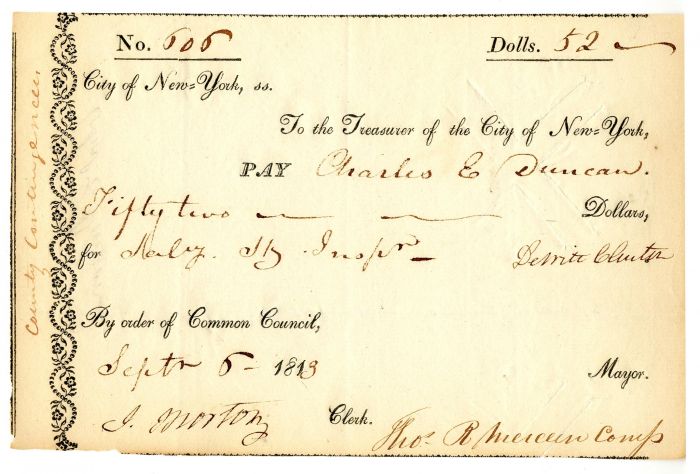 No. 606 Dolls. 52
City of New=York, ss.
To the Treasurer of the City of New=York,
PAY Charles E Duncan.
Fifty two Dollars,
for Saly. St. Inspr DeWitt Clinton
By order of Common Council,
Septr 6 - 1813 Mayor.
J. Morton Clerk.
Thos. R Mercein Comp
County Contingencies